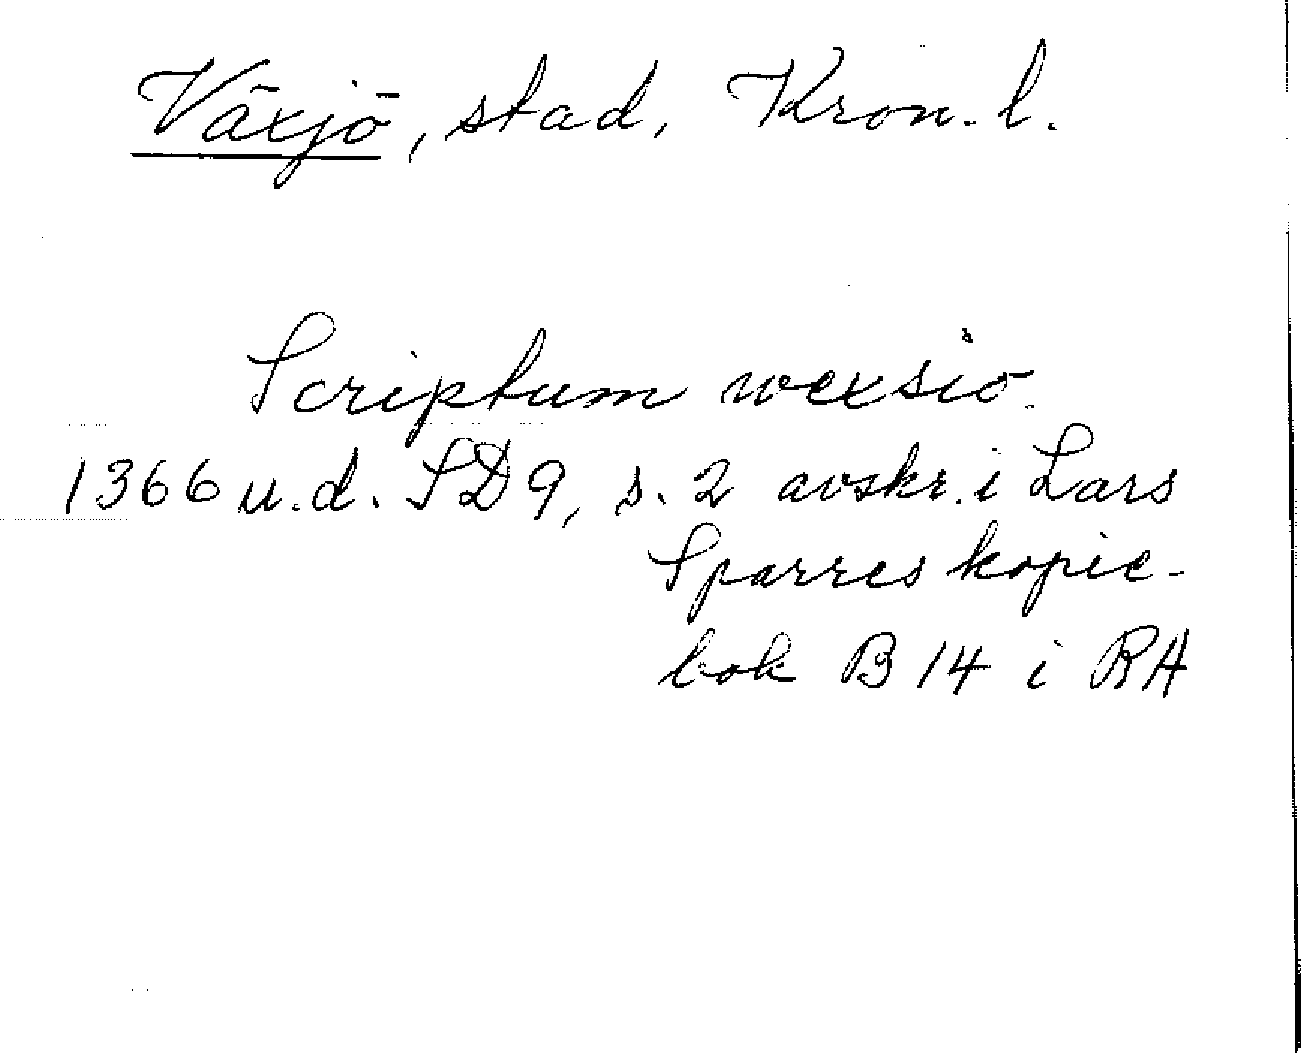 Växjö, stad, Kron. l.
Scriptum wexsio.
1366 u.d. SD 9, s. 2 avskr. i Lars
Sparres kopie-
bok B 14 i RA